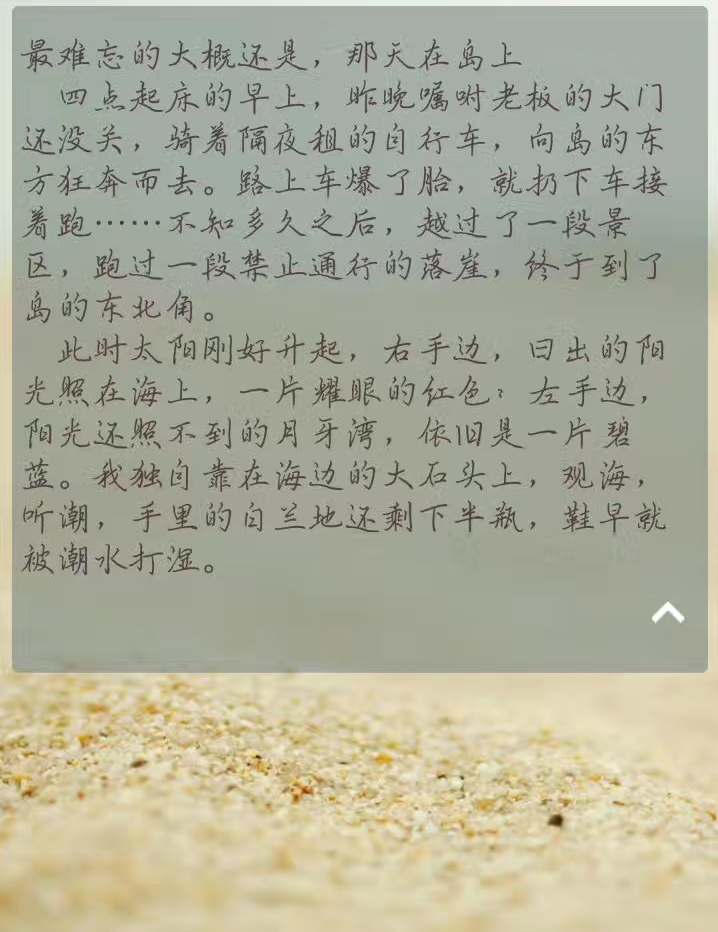 最难忘的大概还是，那天在岛上
四点起床的早上，昨晚嘱咐老板的大门
还没关，骑着隔夜租的自行车，向岛的东
方狂奔而去。路上车爆了胎，就扔下车接
着跑……不知多久之后，越过了一段景
区，跑过一段禁止通行的落崖，终于到了
岛的东北角。
此时太阳刚好升起，右手边，日出的阳
光照在海上，一片耀眼的红色；左手边，
阳光还照不到的月牙湾，依旧是一片碧
蓝。我独自靠在海边的大石头上，观海，
听潮，手里的白兰地还剩下半瓶，鞋早就
被潮水打湿。